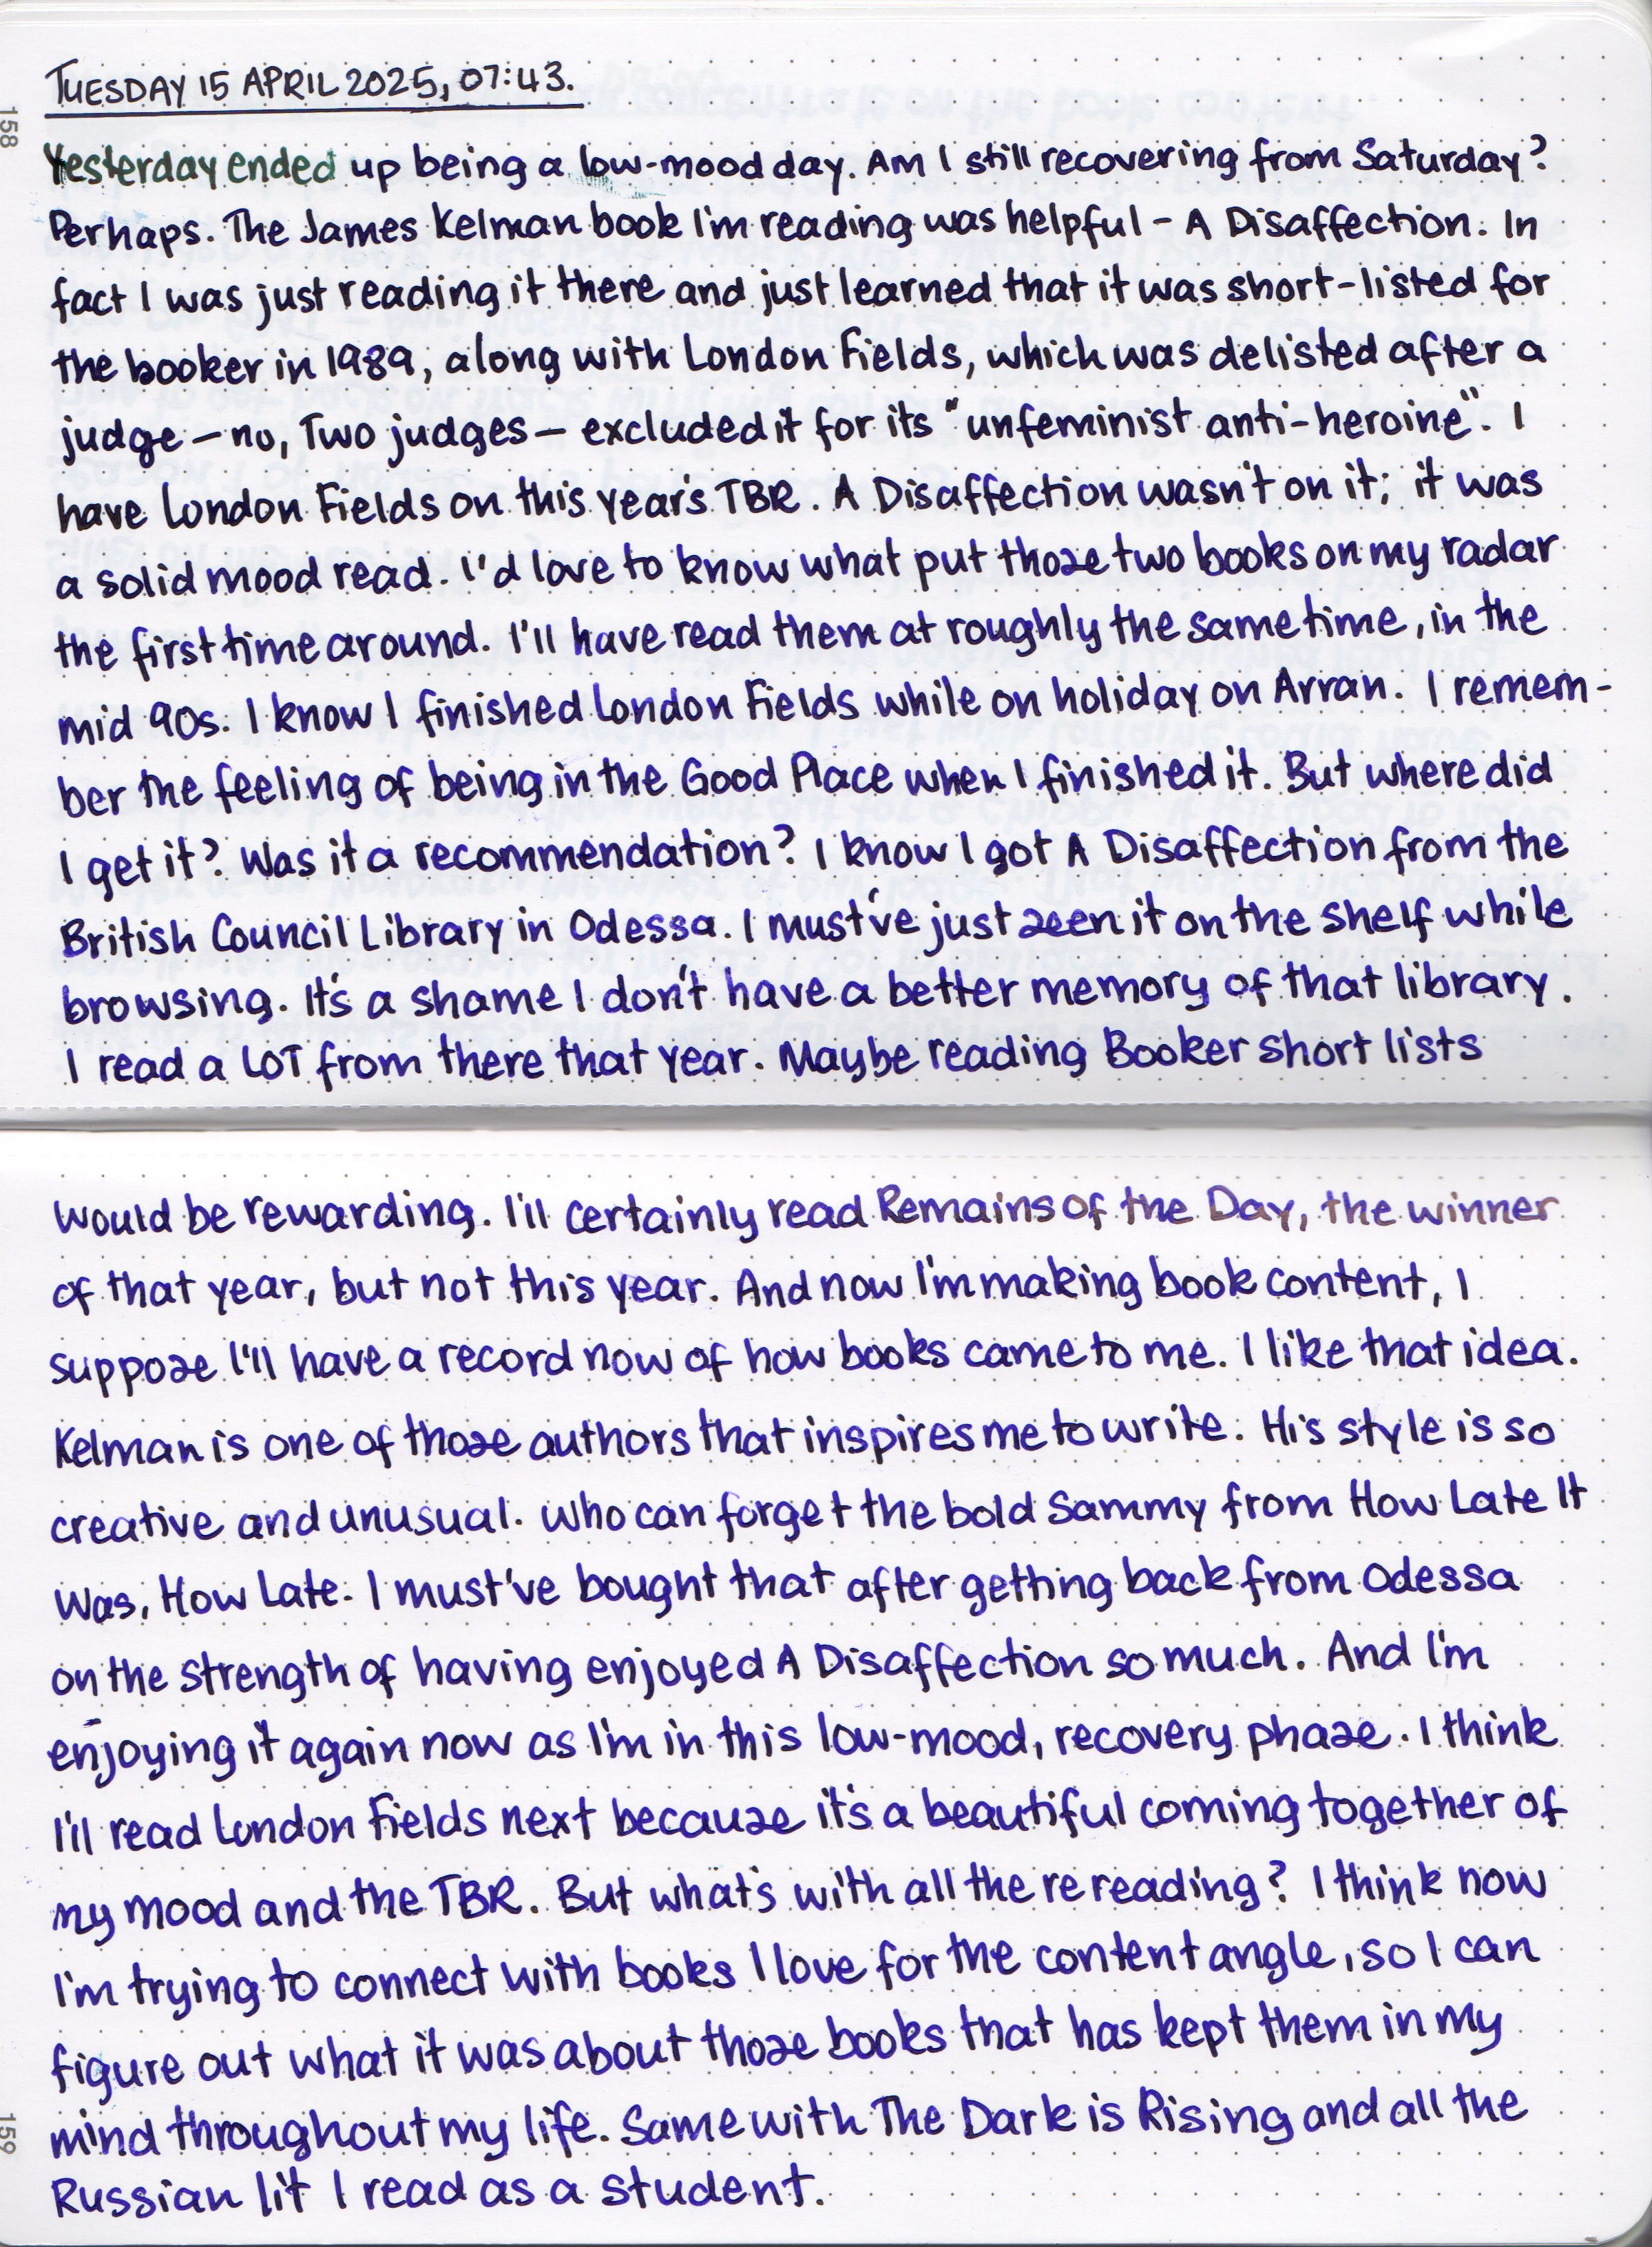 TUESDAY 15 APRIL 2025, 07:43.
158
Yesterday ended up being a low-mood day. Am I still recovering from Saturday?
Perhaps. The James Kelman book I'm reading was helpful - A Disaffection. In
fact I was just reading it there and just learned that it was short-listed for
the booker in 1989, along with London Fields, which was delisted after a
judge - no, Two judges - excluded it for its "unfeminist anti-heroine". I
have London Fields on this year's TBR. A Disaffection wasn't on it; it was
a solid mood read. I'd love to know what put those two books on my radar
the first time around. I'll have read them at roughly the same time, in the
mid 90s. I know I finished London Fields while on holiday on Arran. I remem-
ber the feeling of being in the Good Place when I finished it. But where did
I get it? Was it a recommendation? I know I got A Disaffection from the
British Council Library in Odessa. I must've just seen it on the shelf while
browsing. It's a shame I don't have a better memory of that library.
I read a LOT from there that year. Maybe reading Booker short lists
would be rewarding. I'll certainly read Remains of the Day, the winner
of that year, but not this year. And now I'm making book content, I
suppose I'll have a record now of how books came to me. I like that idea.
Kelman is one of those authors that inspires me to write. His style is so
creative and unusual. Who can forget the bold Sammy from How Late It
Was, How Late. I must've bought that after getting back from Odessa
on the strength of having enjoyed A Disaffection so much. And I'm
enjoying it again now as I'm in this low-mood, recovery phase. I think
I'll read London Fields next because it's a beautiful coming together of
my mood and the TBR. But what's with all the rereading? I think now
I'm trying to connect with books I love for the content angle, so I can
figure out what it was about those books that has kept them in my
mind throughout my life. Same with The Dark is Rising and all the
Russian lit I read as a student.
159